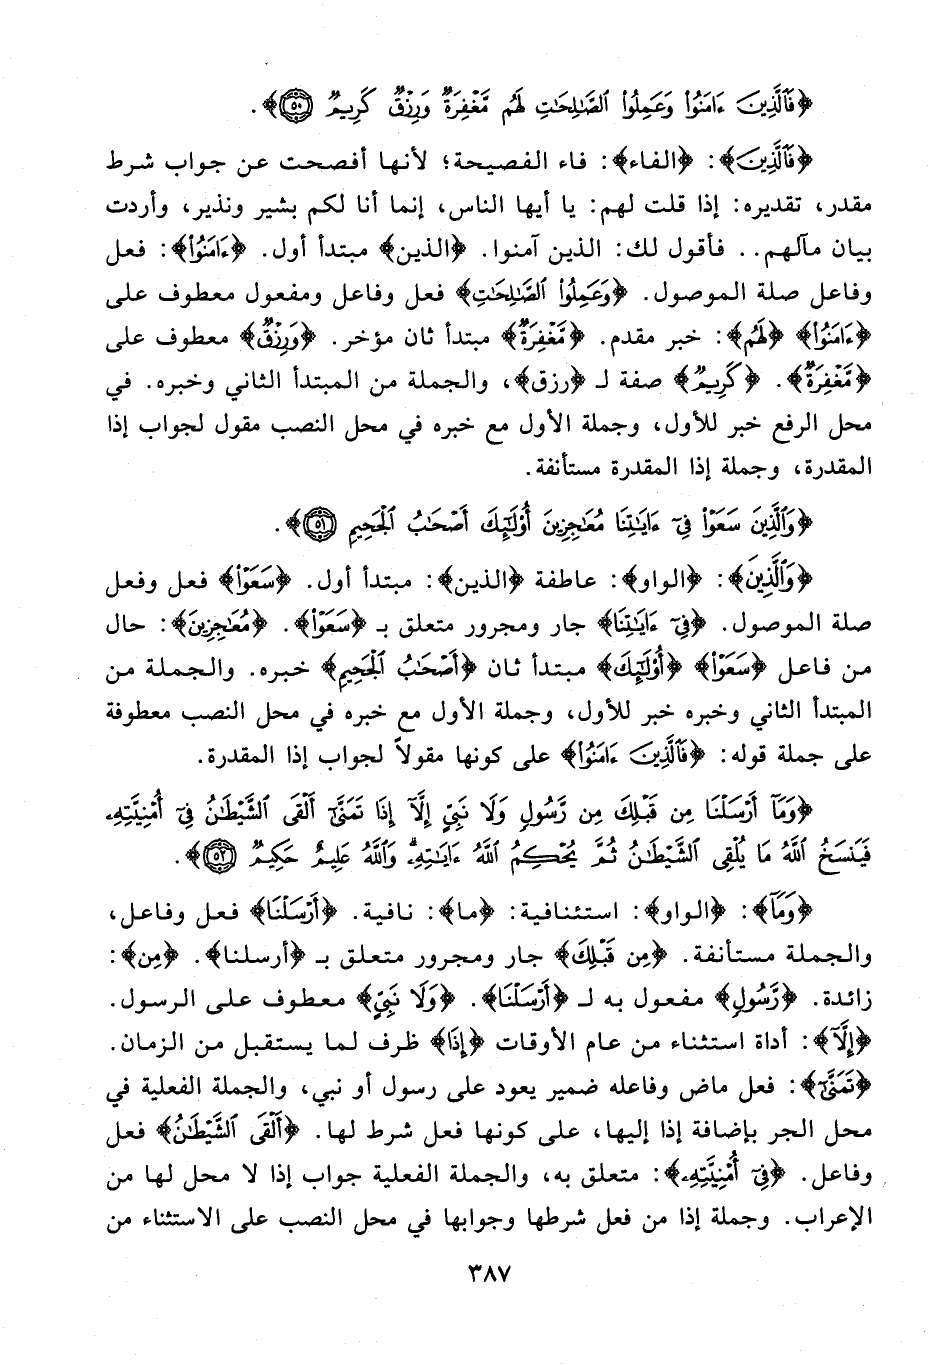 ﴿فَٱلَّذِينَ ءَامَنُوا۟ وَعَمِلُوا۟ ٱلصَّٰلِحَٰتِ لَهُم مَّغْفِرَةٌ وَرِزْقٌ كَرِيمٌ ۝٥٠﴾.
﴿فَٱلَّذِينَ﴾: ﴿الفاء﴾: فاء الفصيحة؛ لأنها أفصحت عن جواب شرط
مقدر، تقديره: إذا قلت لهم: يا أيها الناس، إنما أنا لكم بشير ونذير، وأردت
بيان مآلهم.. فأقول لك: الذين آمنوا. ﴿الذين﴾ مبتدأ أول. ﴿ءَامَنُوا۟﴾: فعل
وفاعل صلة الموصول. ﴿وَعَمِلُوا۟ ٱلصَّٰلِحَٰتِ﴾ فعل وفاعل ومفعول معطوف على
﴿ءَامَنُوا۟﴾ ﴿لَهُم﴾: خبر مقدم. ﴿مَّغْفِرَةٌ﴾ مبتدأ ثان مؤخر. ﴿وَرِزْقٌ﴾ معطوف على
﴿مَّغْفِرَةٌ﴾. ﴿كَرِيمٌ﴾ صفة لـ ﴿رزق﴾، والجملة من المبتدأ الثاني وخبره. في
محل الرفع خبر للأول، وجملة الأول مع خبره في محل النصب مقول لجواب إذا
المقدرة، وجملة إذا المقدرة مستأنفة.
﴿وَٱلَّذِينَ سَعَوْا۟ فِىٓ ءَايَٰتِنَا مُعَٰجِزِينَ أُو۟لَٰٓئِكَ أَصْحَٰبُ ٱلْجَحِيمِ ۝٥١﴾.
﴿وَٱلَّذِينَ﴾: ﴿الواو﴾: عاطفة ﴿الذين﴾: مبتدأ أول. ﴿سَعَوْا۟﴾ فعل وفعل
صلة الموصول. ﴿فِىٓ ءَايَٰتِنَا﴾ جار ومجرور متعلق بـ ﴿سَعَوْا۟﴾. ﴿مُعَٰجِزِينَ﴾: حال
من فاعل ﴿سَعَوْا۟﴾ ﴿أُو۟لَٰٓئِكَ﴾ مبتدأ ثان ﴿أَصْحَٰبُ ٱلْجَحِيمِ﴾ خبره. والجملة من
المبتدأ الثاني وخبره خبر للأول، وجملة الأول مع خبره في محل النصب معطوفة
على جملة قوله: ﴿فَٱلَّذِينَ ءَامَنُوا۟﴾ على كونها مقولاً لجواب إذا المقدرة.
﴿وَمَآ أَرْسَلْنَا مِن قَبْلِكَ مِن رَّسُولٍ وَلَا نَبِىٍّ إِلَّآ إِذَا تَمَنَّىٰٓ أَلْقَى ٱلشَّيْطَٰنُ فِىٓ أُمْنِيَّتِهِۦ
فَيَنسَخُ ٱللَّهُ مَا يُلْقِى ٱلشَّيْطَٰنُ ثُمَّ يُحْكِمُ ٱللَّهُ ءَايَٰتِهِۦ ۗ وَٱللَّهُ عَلِيمٌ حَكِيمٌ ۝٥٢﴾.
﴿وَمَآ﴾: ﴿الواو﴾: استئنافية: ﴿ما﴾: نافية. ﴿أَرْسَلْنَا﴾ فعل وفاعل،
والجملة مستأنفة. ﴿مِن قَبْلِكَ﴾ جار ومجرور متعلق بـ ﴿أرسلنا﴾. ﴿مِن﴾:
زائدة. ﴿رَّسُولٍ﴾ مفعول به لـ ﴿أَرْسَلْنَا﴾. ﴿وَلَا نَبِىٍّ﴾ معطوف على الرسول.
﴿إِلَّآ﴾: أداة استثناء من عام الأوقات ﴿إِذَا﴾ ظرف لما يستقبل من الزمان.
﴿تَمَنَّىٰٓ﴾: فعل ماض وفاعله ضمير يعود على رسول أو نبي، والجملة الفعلية في
محل الجر بإضافة إذا إليها، على كونها فعل شرط لها. ﴿أَلْقَى ٱلشَّيْطَٰنُ﴾ فعل
وفاعل. ﴿فِىٓ أُمْنِيَّتِهِۦ﴾: متعلق به، والجملة الفعلية جواب إذا لا محل لها من
الإعراب. وجملة إذا من فعل شرطها وجوابها في محل النصب على الاستثناء من
٣٨٧